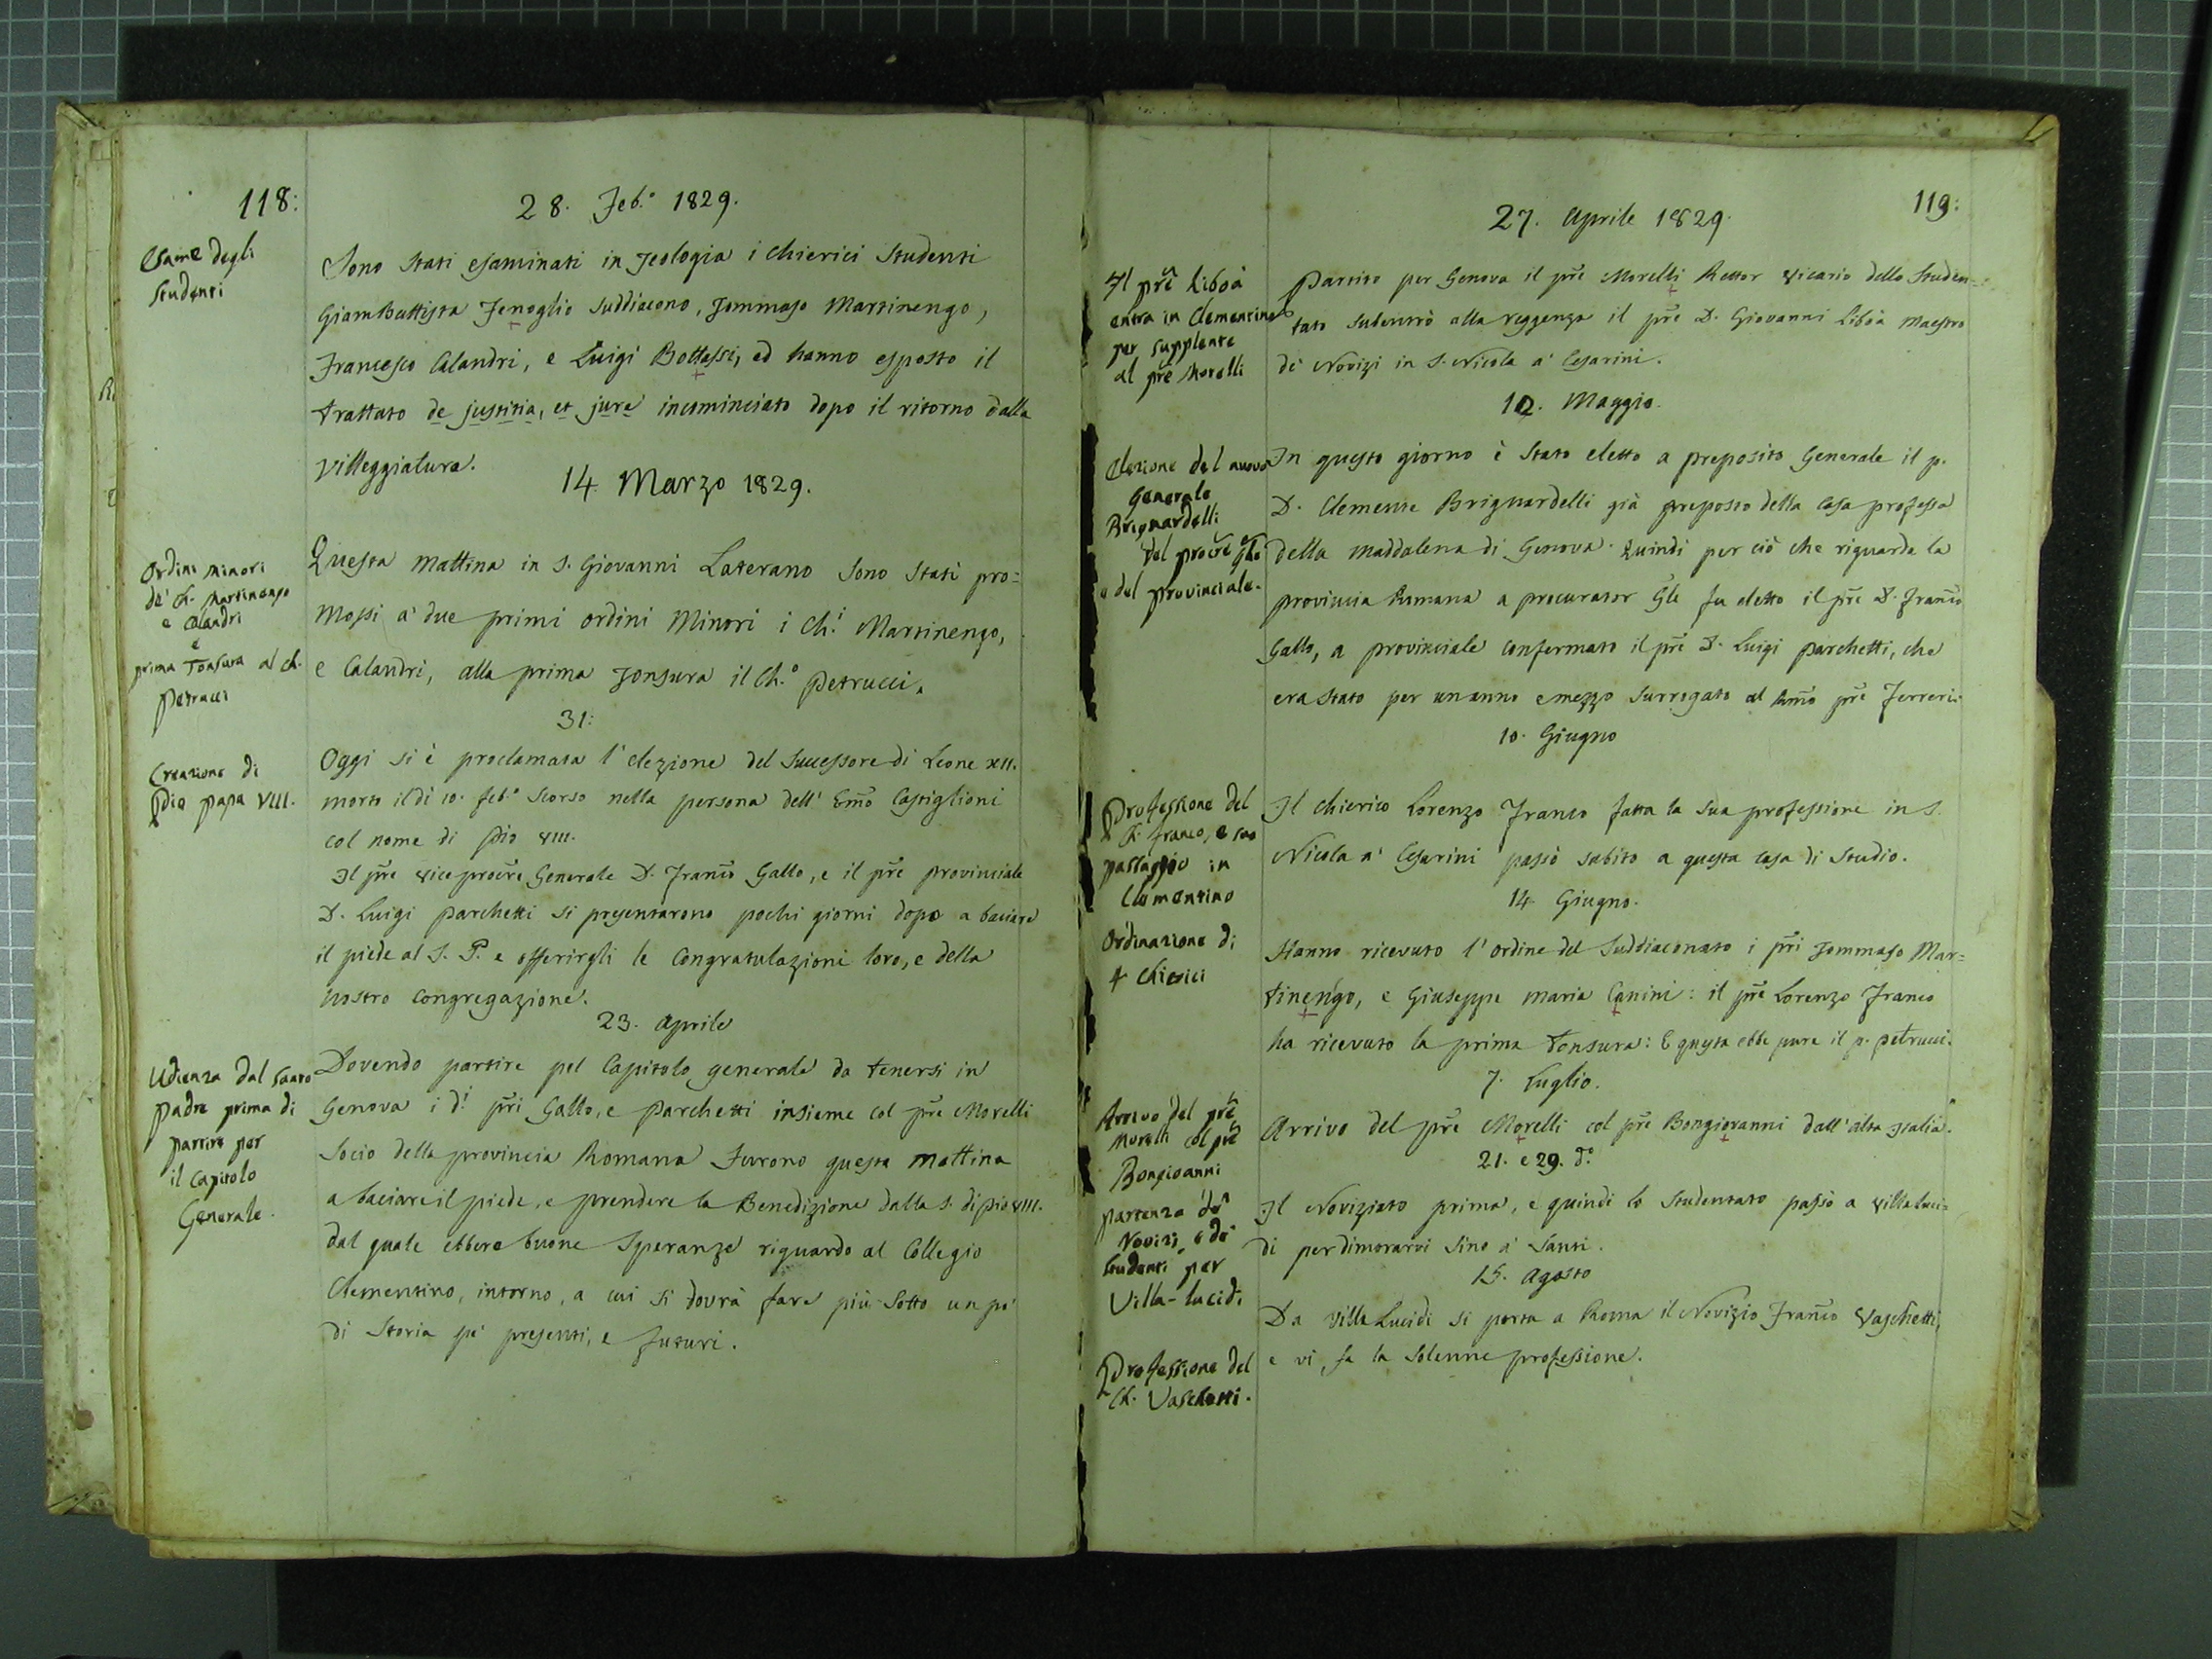 118:
28. Feb.º 1829.
Esame degli
Studenti
Sono stati esaminati in Teologia i Chierici Studenti
GiamBattista Fenoglio Suddiacono, Tommaso Martinengo,
Francesco Calandri, e Luigi Bottassi, ed hanno esposto il
trattato de justitia, et jure incominciato dopo il ritorno dalla
villeggiatura.
14. Marzo 1829.
Ordini Minori
de' Ch. Martinengo
e Calandri
e
prima Tonsura al Ch.
Petrucci
Questa mattina in S. Giovanni Laterano sono stati pro=
mossi a' due primi ordini Minori i Ch.i Martinengo,
e Calandri, alla prima Tonsura il Ch.º Petrucci.
31:
Creazione di
Pio papa VIII.
Oggi si è proclamata l'elezione del Successore di Leone XII.
morto il dì 10. feb.º scorso nella persona dell' Emõ Castiglioni
col nome di Pio VIII.
Il prẽ vice procrẽ Generale D. Franc̃o Gallo, e il prẽ provinciale
D. Luigi Parchetti si presentarono pochi giorni dopo a baciare
il piede al S. P. e offerirgli le Congratulazioni loro, e della
nostra Congregazione.
23. Aprile
Udienza dal Santo
Padre prima di
partire per
il Capitolo
Generale.
Dovendo partire pel Capitolo generale da tenersi in
Genova i d.i pr̃i Gallo, e Parchetti insieme col prẽ Morelli
Socio della provincia Romana furono questa mattina
a baciare il piede, e prendere la Benedizione dalla S. di Pio VIII.
dal quale ebbero buone Speranze riguardo al Collegio
Clementino, intorno, a cui si dovrà fare più sotto un po'
di Storia pe' presenti, e futuri.
119:
27. Aprile 1829.
Il prẽ Liboà
entra in Clementino
per supplente
al prẽ Morelli
Partito per Genova il prẽ Morelli Rettor vicario dello Studen=
tato subentrò alla reggenza il prẽ D. Giovanni Liboà Maestro
de' Novizi in S. Nicola a' Cesarini.
12. Maggio.
Elezione del nuovo
Generale
Brignardelli
del procrẽ Gle
e del provinciale.
In questo giorno è stato eletto a preposito Generale il p.
D. Clemente Brignardelli già preposto della Casa professa
della Maddalena di Genova. Quindi per ciò che riguarda la
provincia Romana a procurator Gle fu eletto il prẽ D. Franc̃o
Gallo, a provinciale confermato il prẽ D. Luigi Parchetti, che
era stato per un anno e mezzo surrogato al prẽ Ferreri.
10. Giugno
Professione del
Ch. Franco, e suo
passaggio in
Clementino
Il Chierico Lorenzo Franco fatta la sua professione in S.
Nicola a' Cesarini passò subito a questa casa di Studio.
14. Giugno.
Ordinazione di
4 Chierici
Hanno ricevuto l'ordine del Suddiaconato i pr̃i Tommaso Mar=
tinengo, e Giuseppe Maria Canini: il prẽ Lorenzo Franco
ha ricevuto la prima tonsura: E questa ebbe pure il p. Petrucci.
7. Luglio.
Arrivo del prẽ
Morelli col prẽ
Bongioanni
Arrivo del prẽ Morelli col prẽ Bongiovanni dall'alta Italia.
21. e 29. d.º
Partenza de'
Novizi, e de'
Studenti per
Villa-Lucidi
Il Noviziato prima, e quindi lo Studentato passò a Villa Luci=
di per dimorarvi sino a' Santi.
15. Agosto
Professione del
Ch. Vaschetti.
Da Villa Lucidi si porta a Roma il Novizio Franc̃o Vaschetti,
e vi fa la solenne professione.